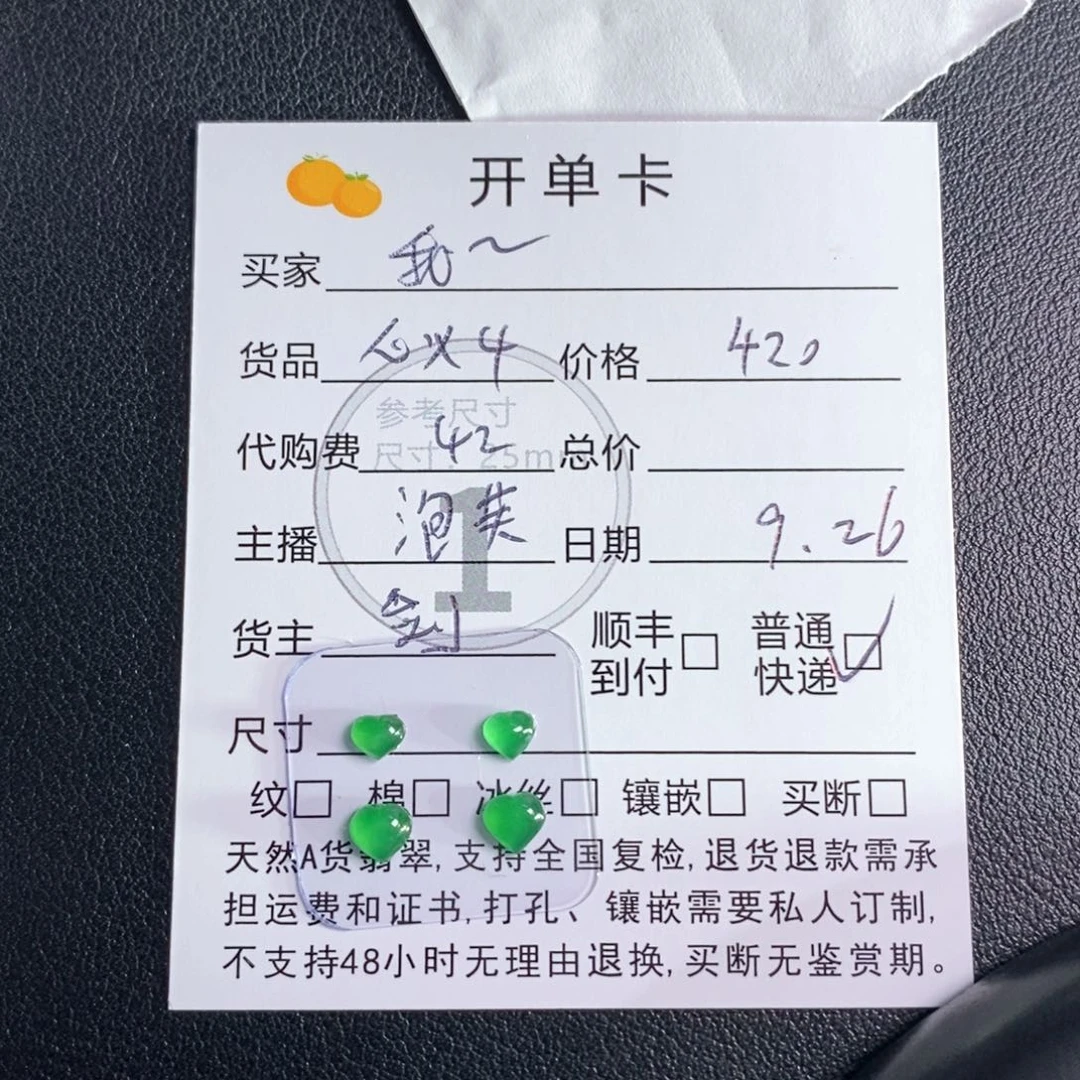 开单卡
买家 我~
货品 心×4 价格 420
参考尺寸
尺寸：25mm
代购费 42 总价
1
主播 泡芙 日期 9.26
货主
顺丰到付□ 普通快递□✓
尺寸
纹□ 棉□ 冰丝□ 镶嵌□ 买断□
天然A货翡翠,支持全国复检,退货退款需承
担运费和证书,打孔、镶嵌需要私人订制,
不支持48小时无理由退换,买断无鉴赏期。